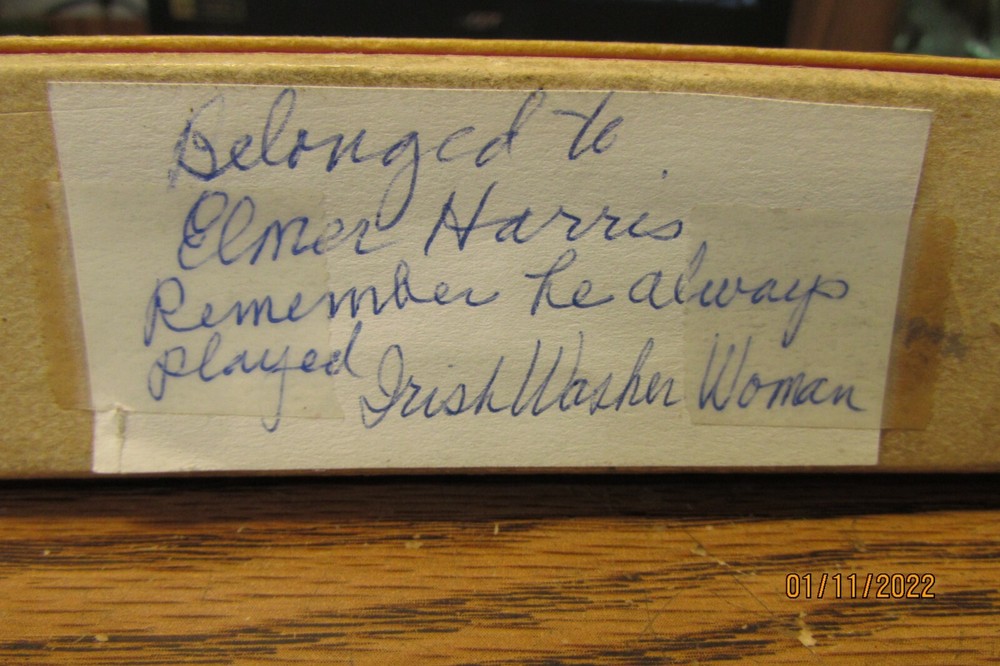 Belonged to
Elmer Harris
Remember he always
played Irish Washer Woman
01/11/2022